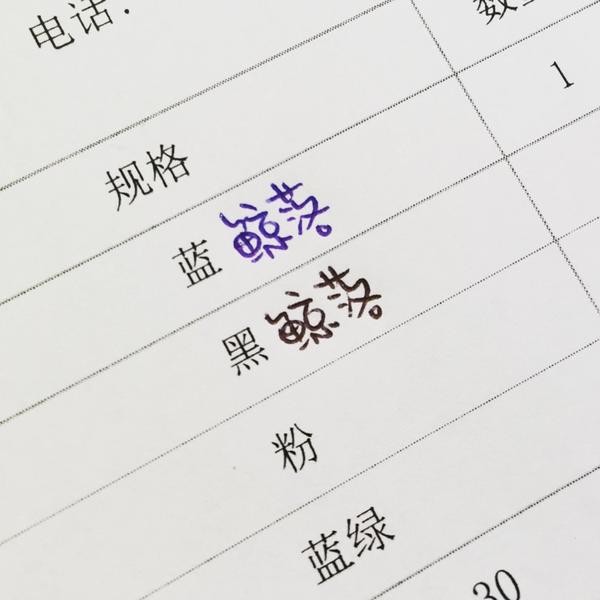 电话:
数量
规格
1
蓝 鲸落
黑 鲸落
粉
蓝绿
30